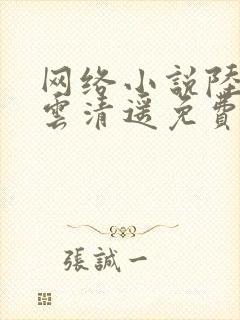 网络小説陸
雲清遥免費
張誠一